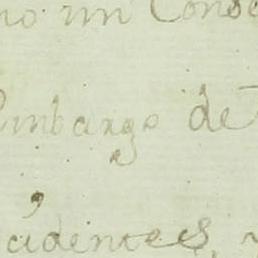 no un Cons
Embargo de
cidentes, y